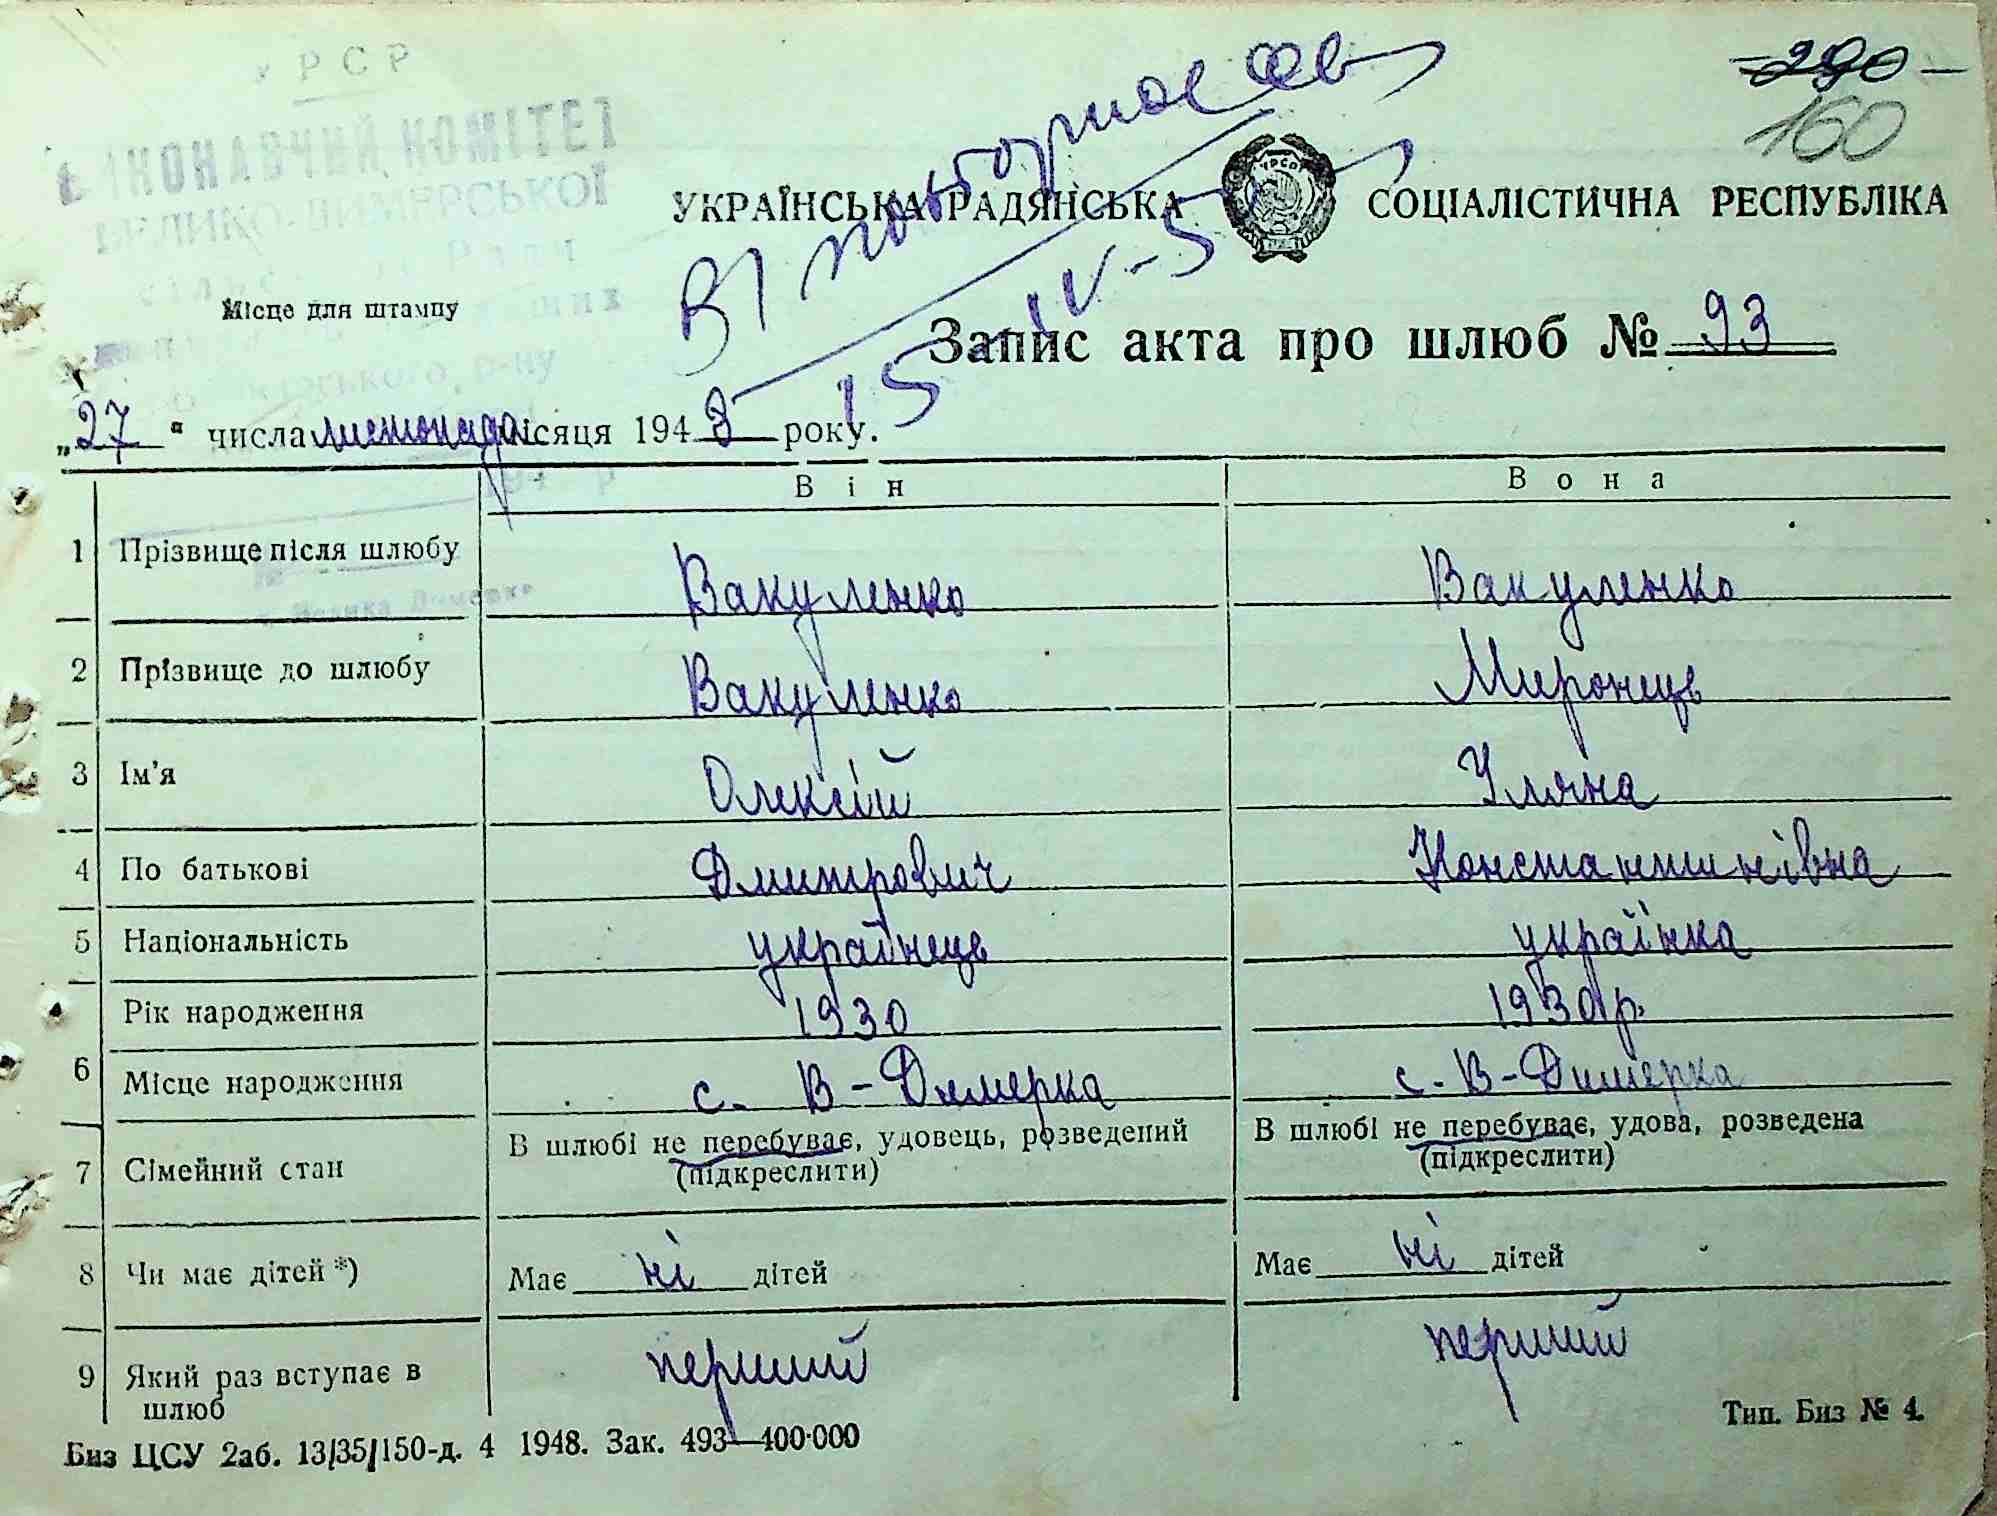 РСР
ВИКОНАВЧИЙ КОМІТЕТ
ВЕЛИКО-ДИМЕРСЬКОЇ
290
160
УКРАЇНСЬКА РАДЯНСЬКА СОЦІАЛІСТИЧНА РЕСПУБЛІКА
Місце для штампу
Запис акта про шлюб № 93
„27“ числа листопада місяця 1948 року.
Він Вона
1 Прізвище після шлюбу Вакуленко Вакуленко
2 Прізвище до шлюбу Вакуленко Миронець
3 Ім’я Олексій Уляна
4 По батькові Дмитрович Константинівна
5 Національність українець українка
Рік народження 1930 1930 р.
6 Місце народження с. В-Димерка с. В-Димерка
7 Сімейний стан В шлюбі не перебуває, удовець, розведений В шлюбі не перебуває, удова, розведена
(підкреслити) (підкреслити)
8 Чи має дітей *) Має ні дітей Має ні дітей
9 Який раз вступає в шлюб перший перший
Биз ЦСУ 2аб. 13/35/150-д. 4 1948. Зак. 493—400·000 Тип. Биз № 4.